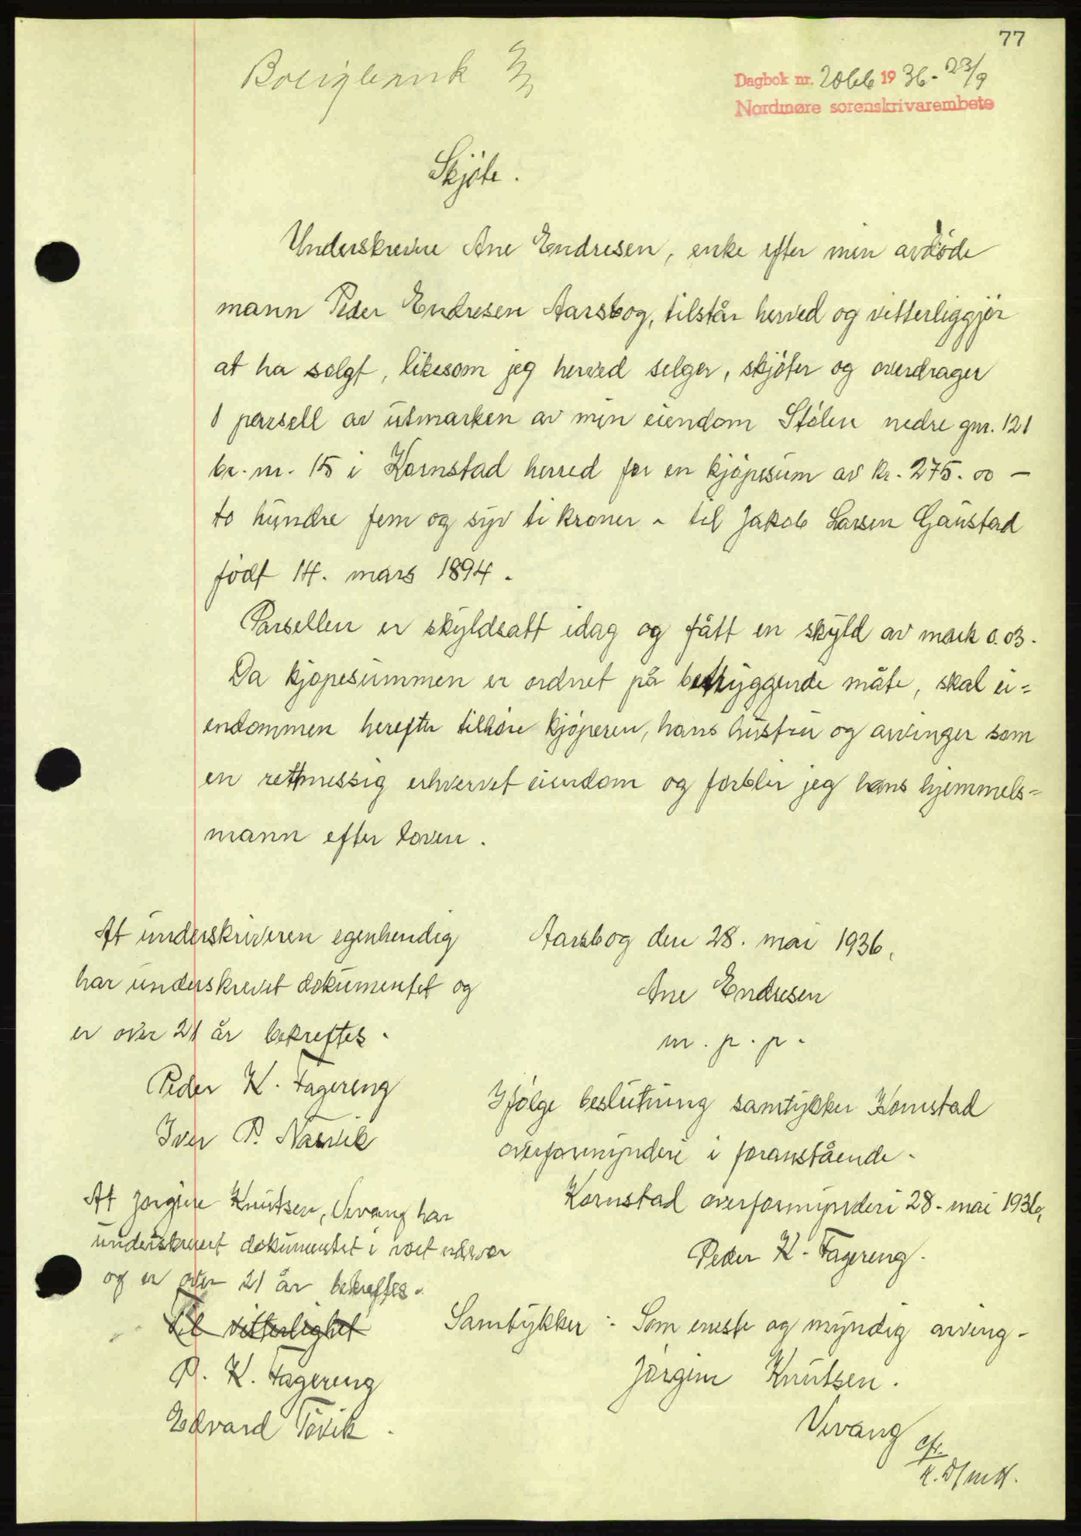 77
Dagbok nr. 2066 1936 - 23/9
Nordmøre sorenskrivarembete
Skjøte.
Underskrevne Ane Endresen, enke efter min avdøde
mann Peder Endresen Aarsbog, tilstår herved og vitterliggjør
at ha solgt, likesom jeg herved selger, skjøter og overdrager
1 parsell av utmarken av min eiendom Stølen nedre gnr. 121
br. nr. 15 i Kornstad herred for en kjøpesum av kr. 275.00 —
to hundre fem og syv ti kroner - til Jakob Larsen Gaustad
født 14. mars 1894.
Parsellen er skyldsatt idag og fått en skyld av mark 0.03.
Da kjøpesummen er ordnet på betryggende måte, skal ei=
endommen herefter tilhøre kjøperen, hans hustru og arvinger som
en rettmessig erhvervet eiendom og forblir jeg hans hjemmels=
mann efter loven.
Aarsbog den 28. mai 1936.
Ane Endresen
m. p. p.
At underskriveren egenhendig
har underskrevet dokumentet og
er over 21 år bekreftes.
Peder K. Fagereng
Iver P. Næsvik
Ifølge beslutning samtykker Kornstad
overformynderi i foranstående.
Kornstad overformynderi 28. mai 1936,
Peder K. Fagereng.
At Jørgine Knutsen, Vevang har
underskrevet dokumentet i vort nærvær
og er over 21 år bekreftes.
Til vitterlighet
P. K. Fagereng
Edvard Tøvik.
Samtykker: Som eneste og myndig arving -
Jørgine Knutsen.
Vevang